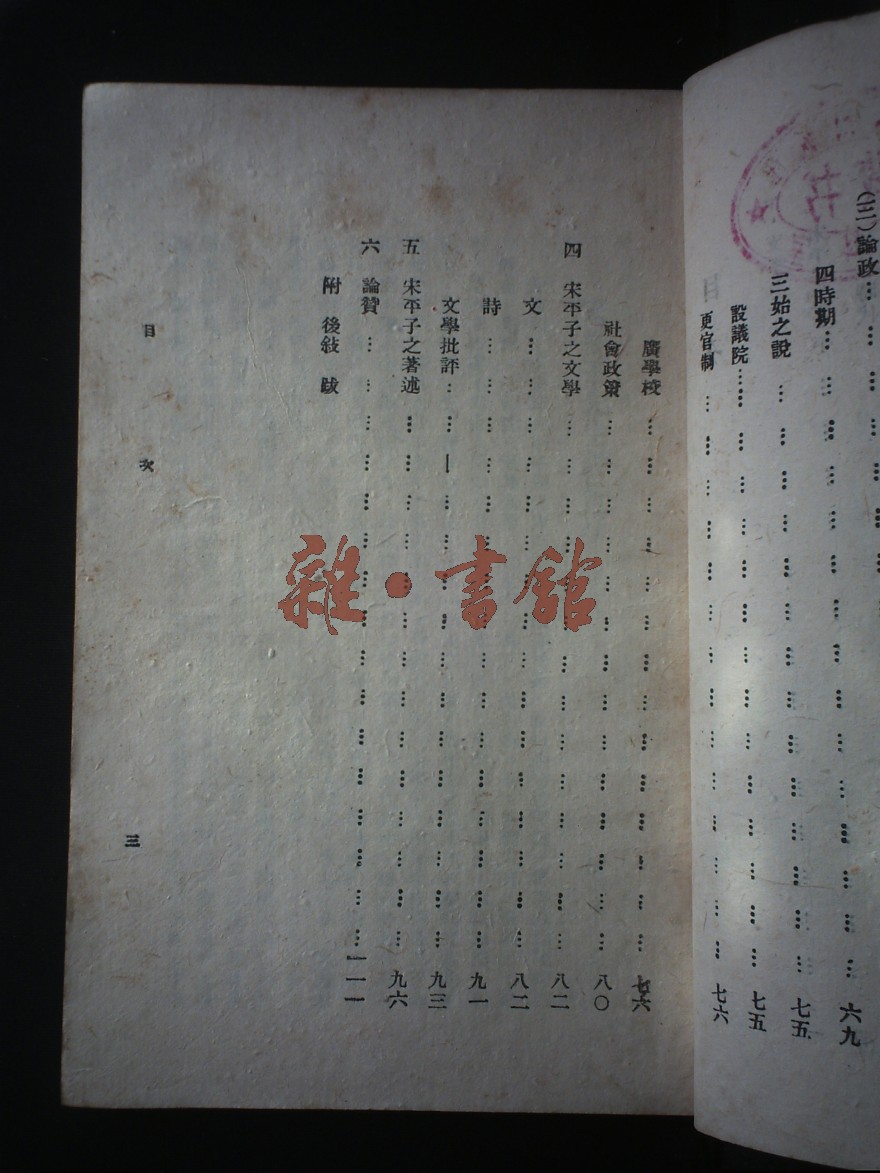 (三)論政… … … … … … … … … … … … … … … … 六九
四時期… … … … … … … … … … … … … … … … 七五
三始之說 … … … … … … … … … … … … … … … 七五
設議院… … … … … … … … … … … … … … … 七五
更官制 … … … … … … … … … … … … … … … 七六
廣學校 … … … … … … … … … … … … … … 七六
社會政策 … … … … … … … … … … … … … … 八〇
四 宋平子之文學 … … … … … … … … … … … … … … 八二
文 … … … … … … … … … … … … … … … … 八二
詩 … … … … … … … … … … … … … … … … 九一
文學批評 … … … … … … … … … … … … … … … 九三
五 宋平子之著述 … … … … … … … … … … … … … … 九六
六 論贊 … … … … … … … … … … … … … … … … 一一一
附 後敍 跋
目 次
三
雜·書館